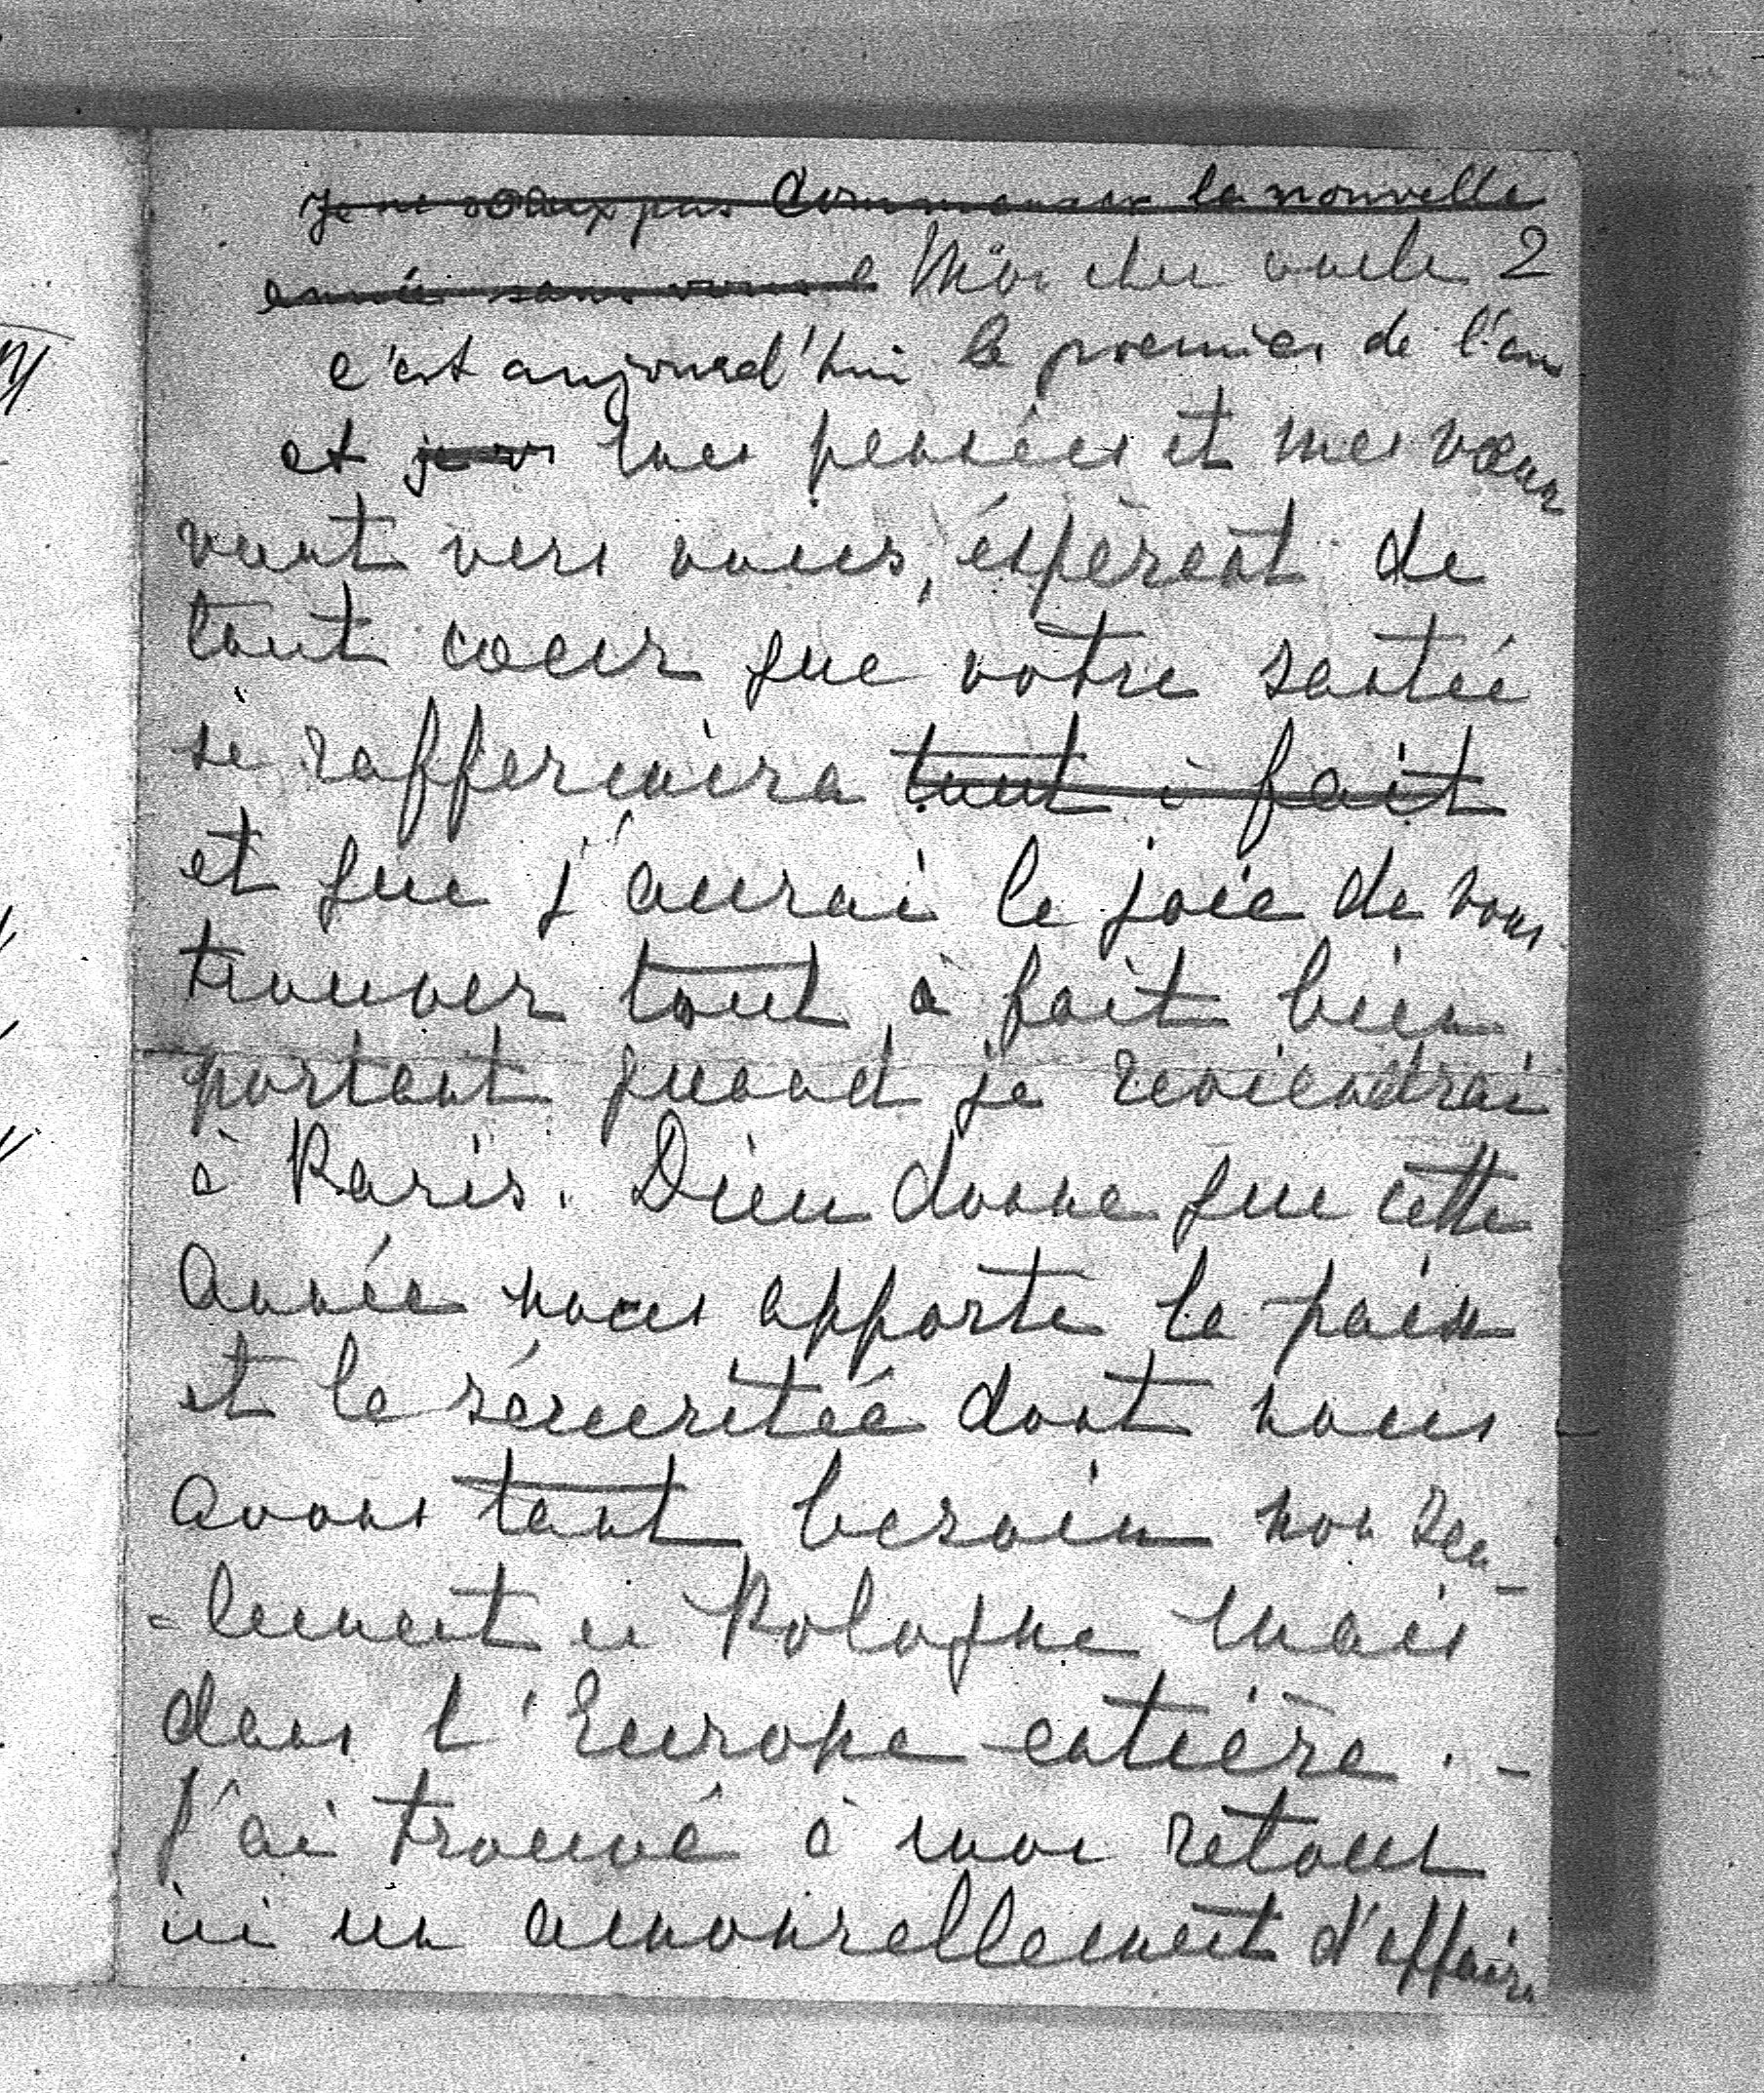 Je ne veux pas commencer la nouvelle
année sans vous
Mon cher oncle 2
c'est aujourd'hui le premier de l'an
et je mes pensées et mes vœux
vont vers vous, éspèrent de
tout coeur que votre santée
se raffermira tout à fait
et que j'aurai la joie de vous
trouver tout à fait bien
portant quand je reviendrai
à Paris. Dieu donne que cette
année nous apporte la paix
et la sécuritée dont nous
avons tant besoin non seu-
-lement en Pologne mais
dans l'Europe entière. -
J'ai trouvé à mon retour
ici un d'affaire